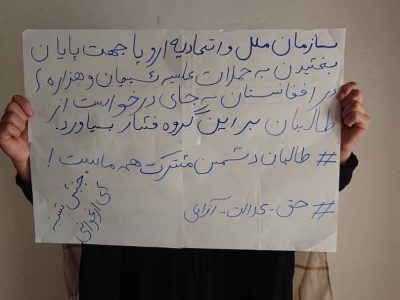 سازمان ملل و اتحادیه اروپا جهت پایان
بخشیدن به حملات علیه شیعیان و هزاره
در افغانستان به جای درخواست از
طالبان بر این گروه فشار بیاورد.
# طالبان دشمن مشترک همه ماست!
# حق - عدالت - آزادی
جنبش شنبه
های ارغوانی